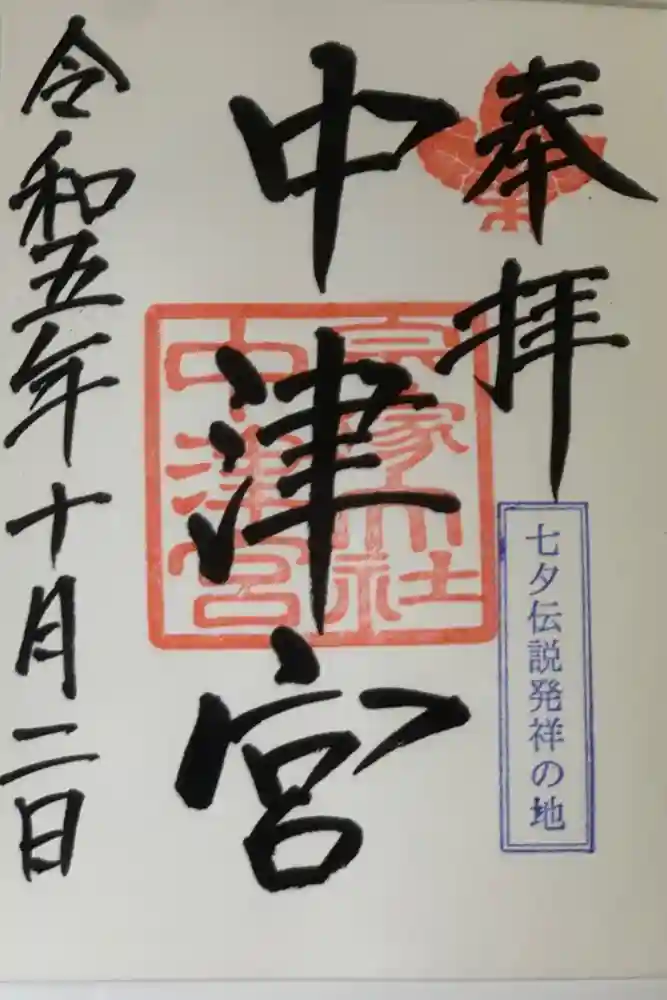 奉拝
七夕伝説発祥の地
中津宮
宗像大社
中津宮
令和五年十月二日